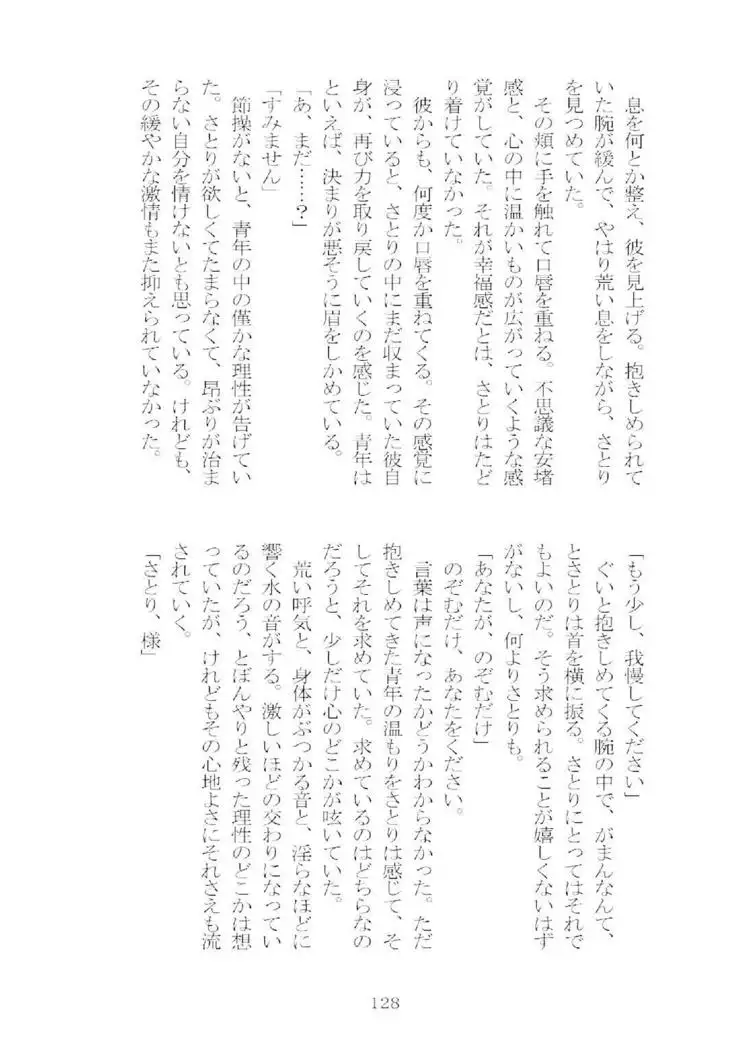 息を何とか整え、彼を見上げる。抱きしめられて
いた腕が緩んで、やはり荒い息をしながら、さとり
を見つめていた。
その頬に手を触れて口唇を重ねる。不思議な安堵
感と、心の中に温かいものが広がっていくような感
覚がしていた。それが幸福感だとは、さとりはたど
り着けていなかった。
彼からも、何度か口唇を重ねてくる。その感覚に
浸っていると、さとりの中にまだ収まっていた彼自
身が、再び力を取り戻していくのを感じた。青年は
といえば、決まりが悪そうに眉をしかめている。
「あ、まだ……?」
「すみません」
節操がないと、青年の中の僅かな理性が告げてい
た。さとりが欲しくてたまらなくて、昂ぶりが治ま
らない自分を情けないとも思っている。けれども、
その緩やかな激情もまた抑えられていなかった。
「もう少し、我慢してください」
ぐいと抱きしめてくる腕の中で、がまんなんて、
とさとりは首を横に振る。さとりにとってはそれで
もよいのだ。そう求められることが嬉しくないはず
がないし、何よりさとりも。
「あなたが、のぞむだけ」
のぞむだけ、あなたをください。
言葉は声になったかどうかわからなかった。ただ
抱きしめてきた青年の温もりをさとりは感じて、そ
してそれを求めていた。求めているのはどちらなの
だろうと、少しだけ心のどこかが呟いていた。
荒い呼気と、身体がぶつかる音と、淫らなほどに
響く水の音がする。激しいほどの交わりになってい
るのだろう、とぼんやりと残った理性のどこかは想
っていたが、けれどもその心地よさにそれさえも流
されていく。
「さとり、様」
128